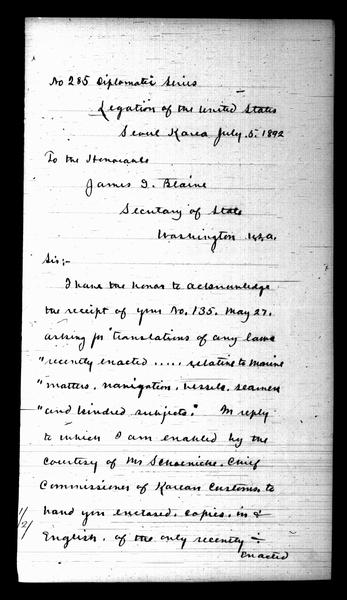 No 285 Diplomatic Series
Legation of the United States
Seoul Korea July. 5. 1892
To the Honorable
James G. Blaine
Secretary of State
Washington
Sir;-
I have the honor to acknowledge
the receipt of your No. 135. May 27.
asking for "translations of any laws
"recently enacted ..... relative to marine
"matters. navigation. vessels. seamen
"and kindred subjects." In reply
to which I am enabled by the
courtesy of Mr Schoenicke. Chief
Commissioner of Korean Customs. to
hand you enclosed. copies. in
English. of the only recently -
enacted
1/
2/